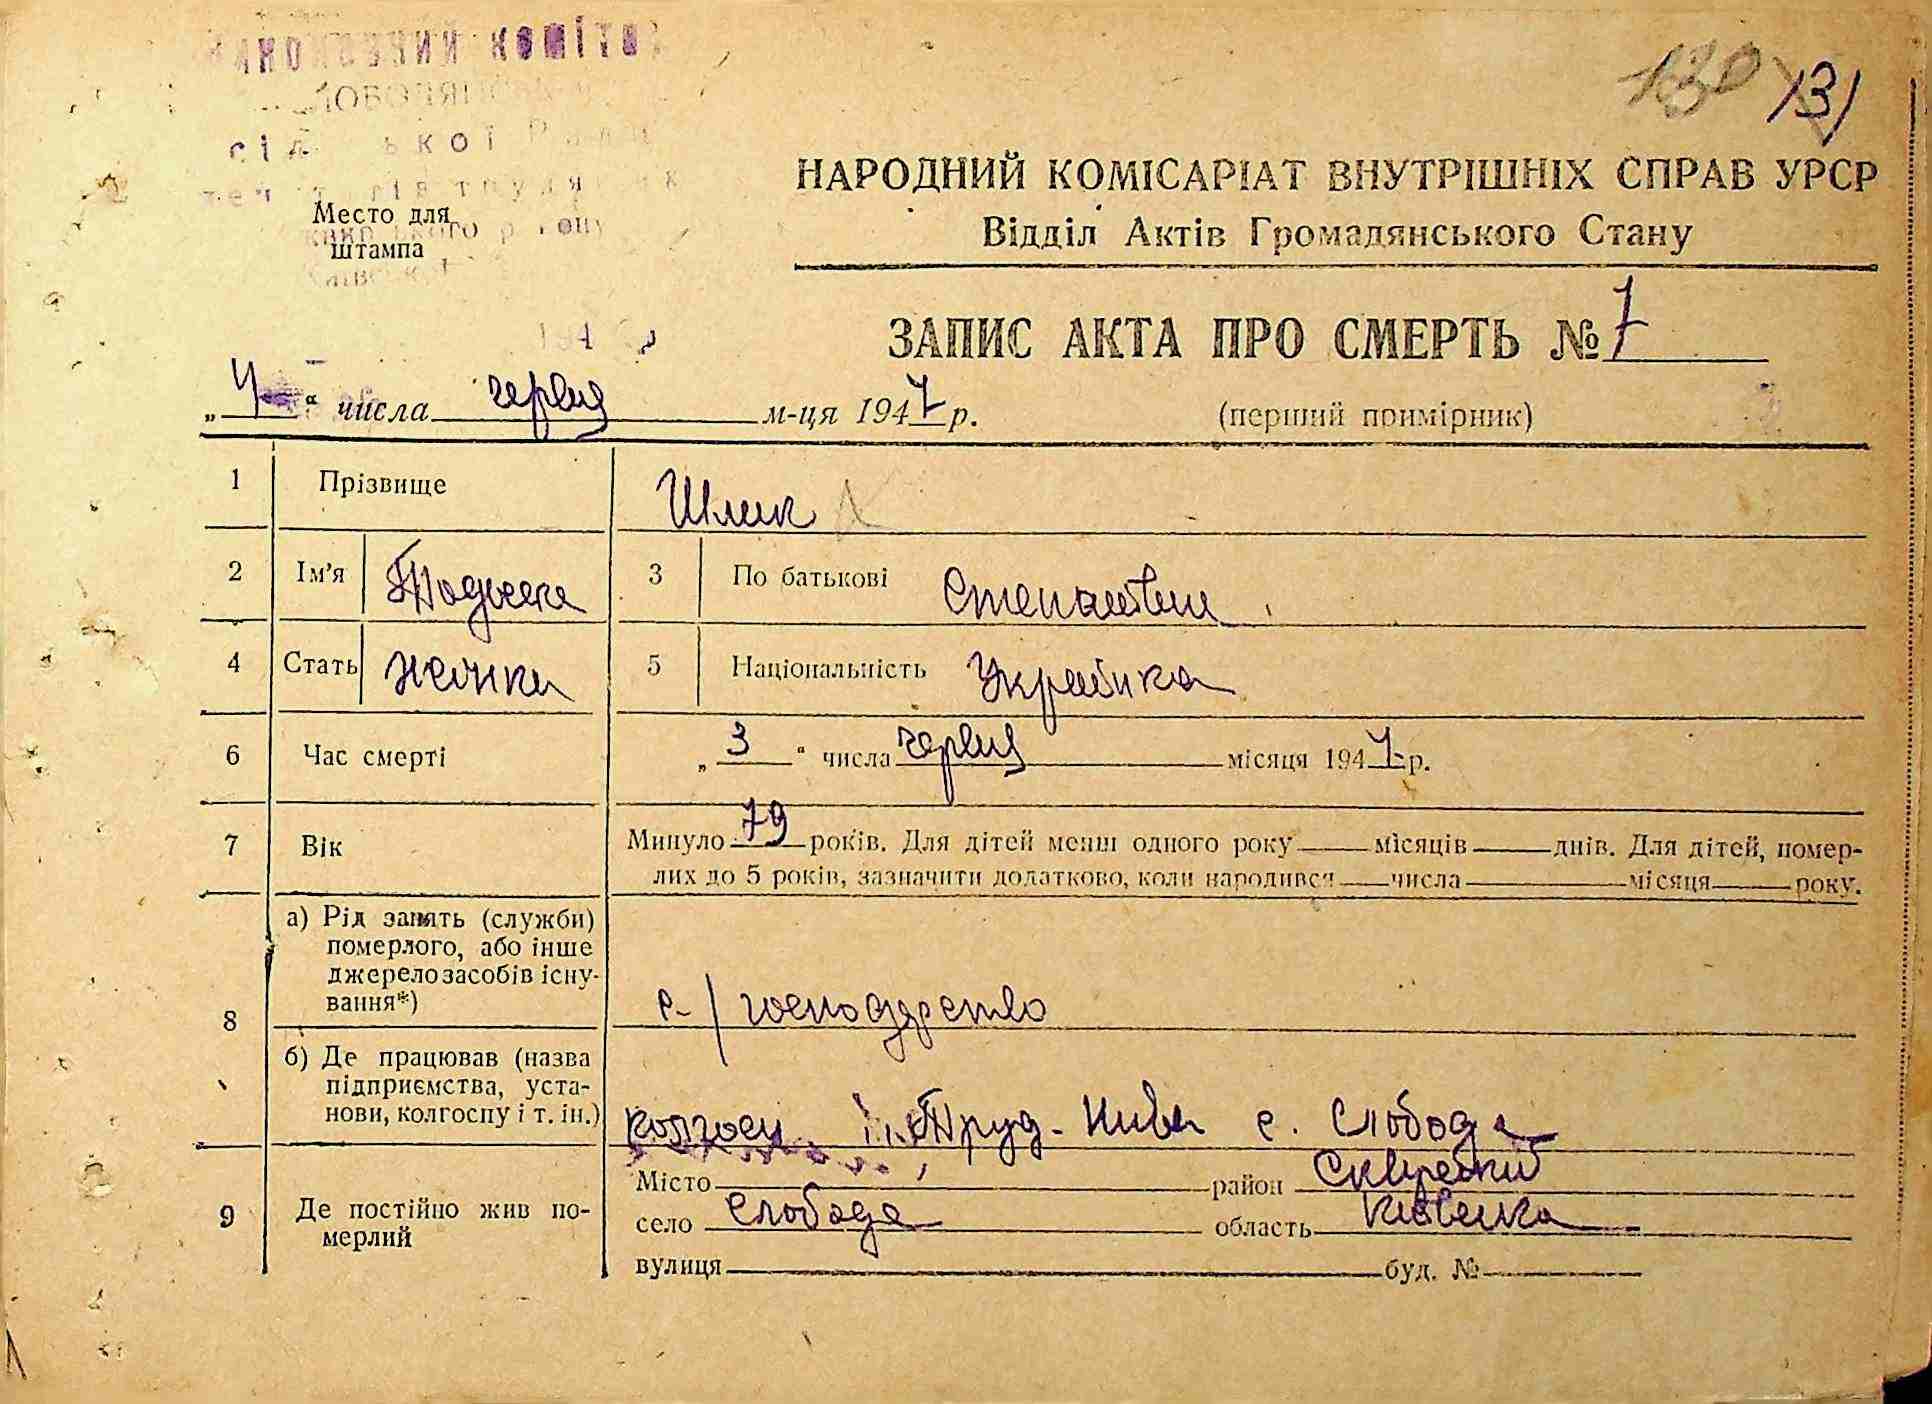 130 131
Место для
штампа
НАРОДНИЙ КОМІСАРІАТ ВНУТРІШНІХ СПРАВ УРСР
Відділ Актів Громадянського Стану
ЗАПИС АКТА ПРО СМЕРТЬ № 7
„ 4 “ числа червня м-ця 1947 р. (перший примірник)
1 Прізвище Шлик
2 Ім'я 3 По батькові
4 Стать жінка 5 Національність Українка
6 Час смерті „ 3 “ числа червня місяця 1947 р.
7 Вік Минуло 79 років. Для дітей менш одного року місяців днів. Для дітей, помер-
лих до 5 років, зазначити додатково, коли народився числа місяця року.
8 а) Рід занять (служби)
померлого, або інше
джерело засобів існу-
вання*) с/господарство
б) Де працював (назва
підприємства, уста-
нови, колгоспу і т. ін.) колгосп Труд-Нива с. Слобода
9 Де постійно жив по-
мерлий
Місто район Сквирський
село Слобода область Київська
вулиця буд. №